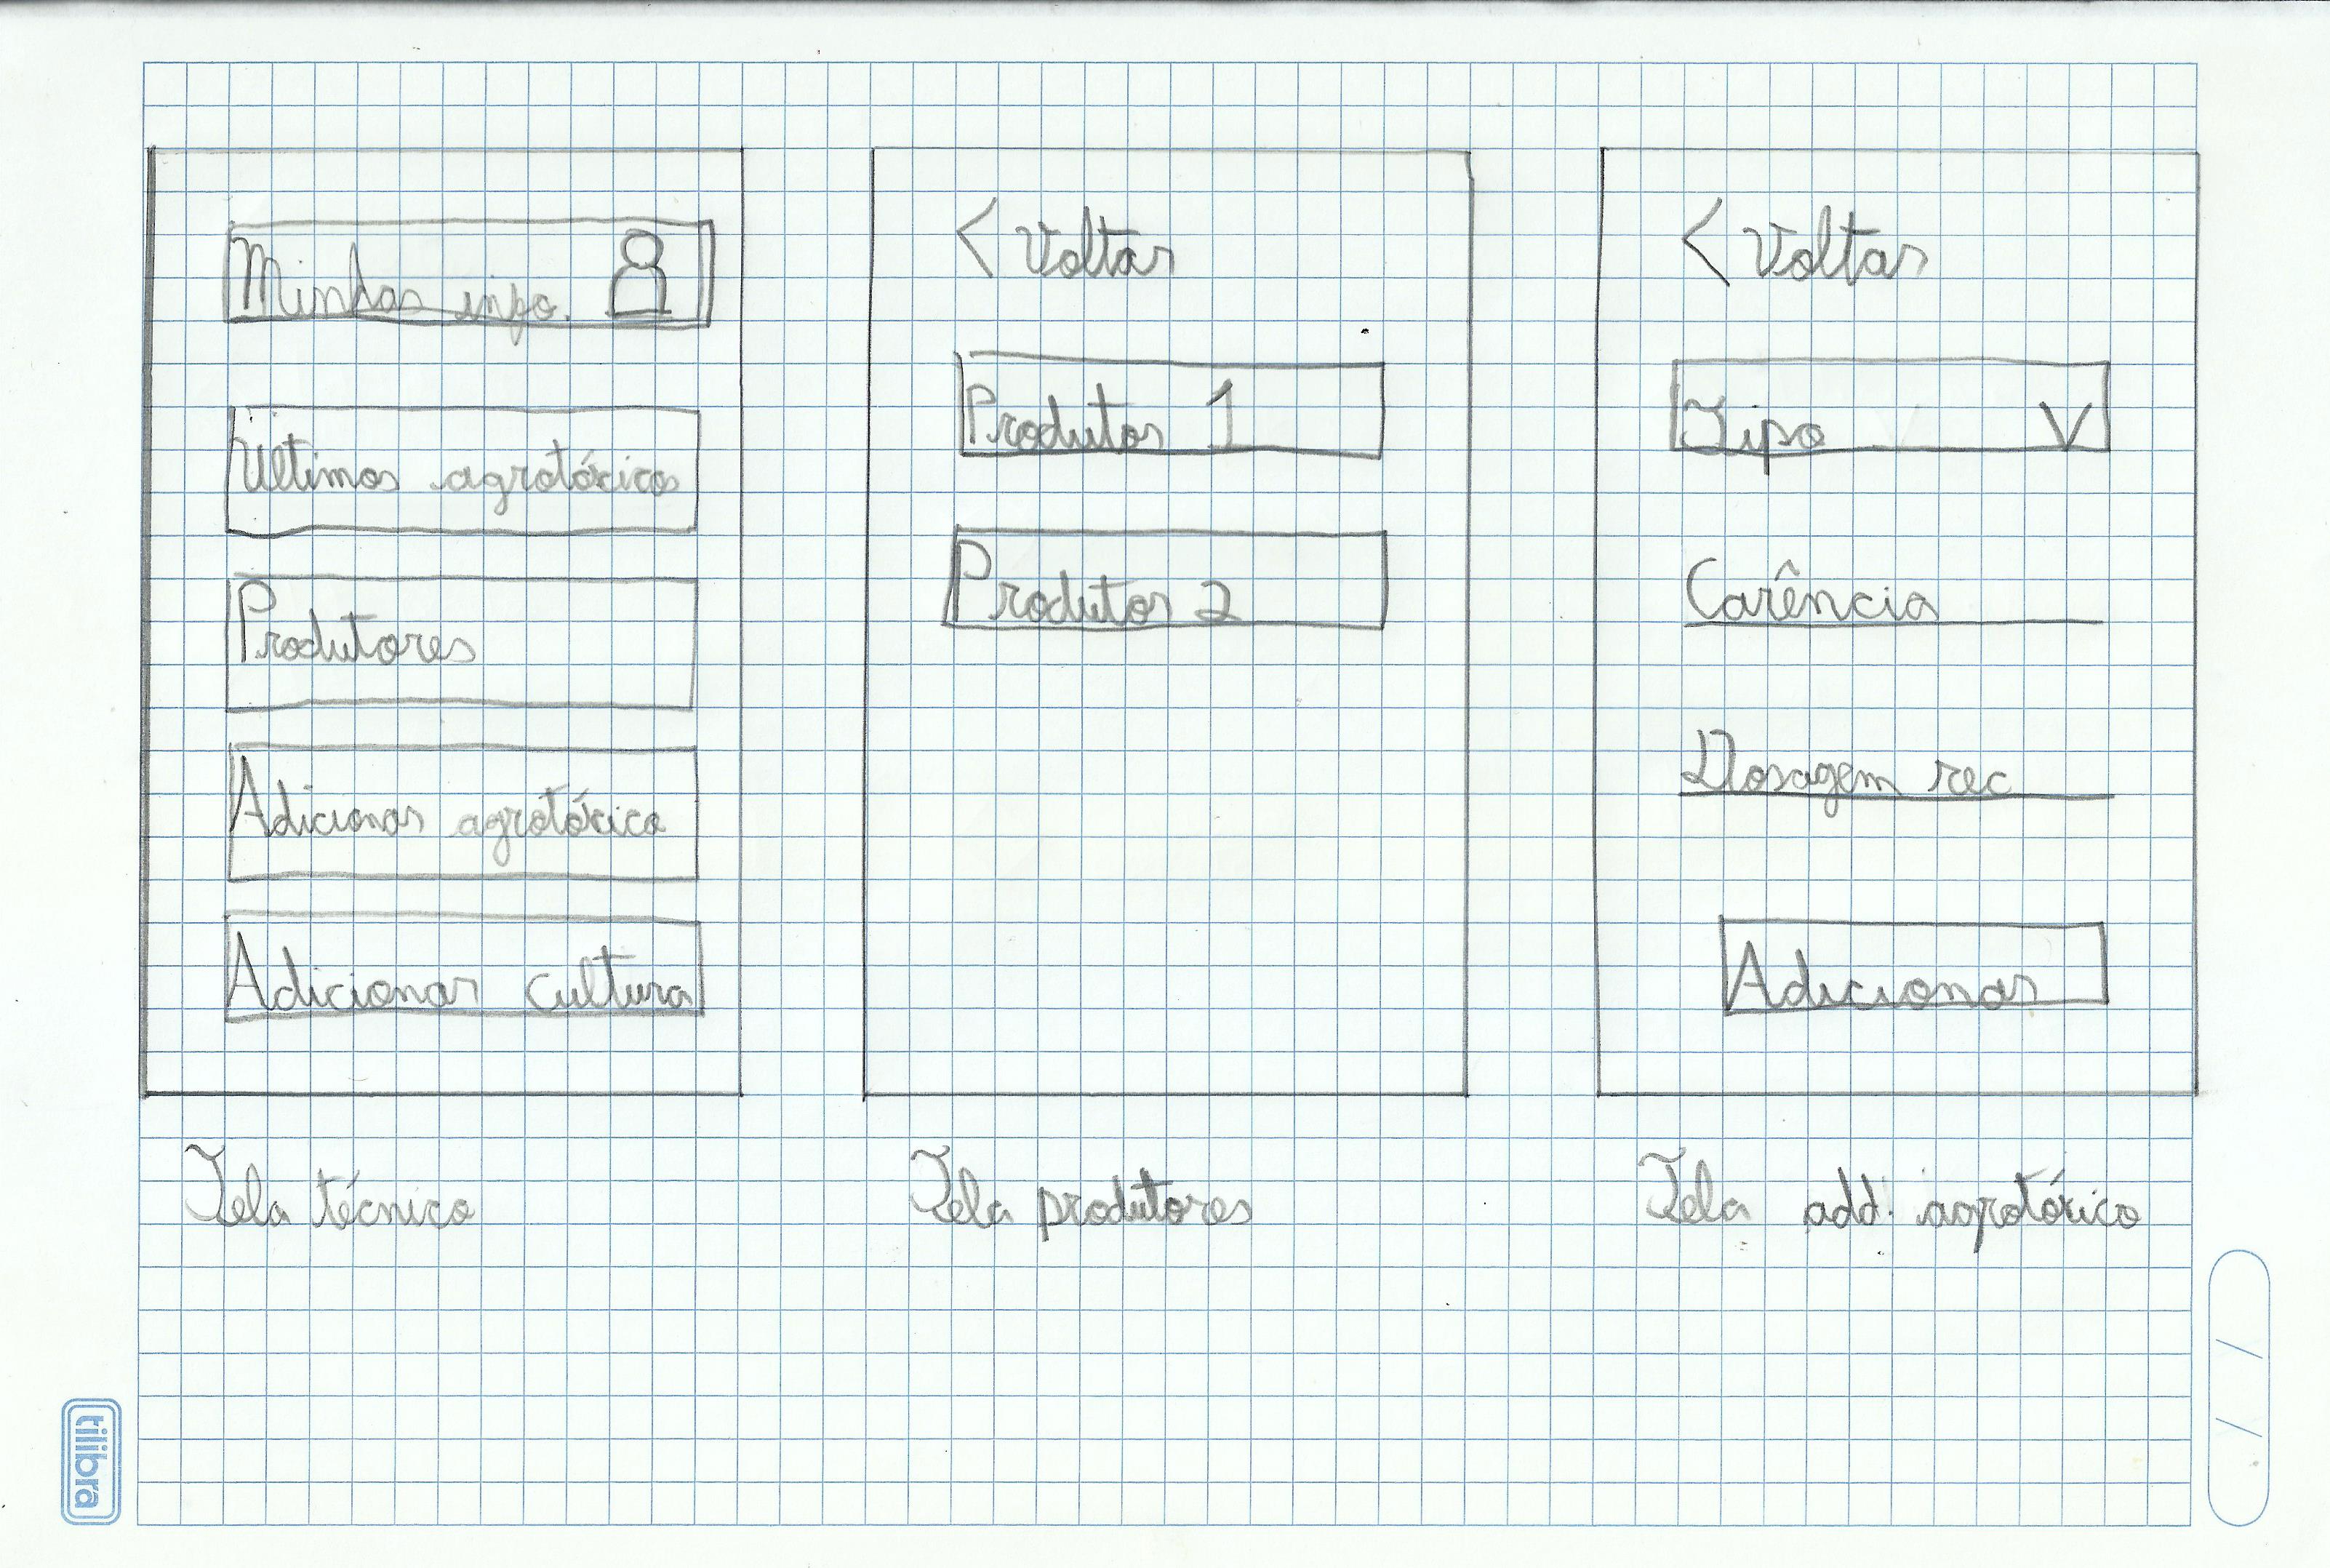 Minhas info.
Últimos agrotóxicos
Produtores
Adicionar agrotóxico
Adicionar cultura
Tela técnico
< Voltar
Produtor 1
Produtor 2
Tela produtores
< Voltar
Tipo V
Carência
Dosagem rec
Adicionar
Tela add. agrotóxico
tilibra
/ /